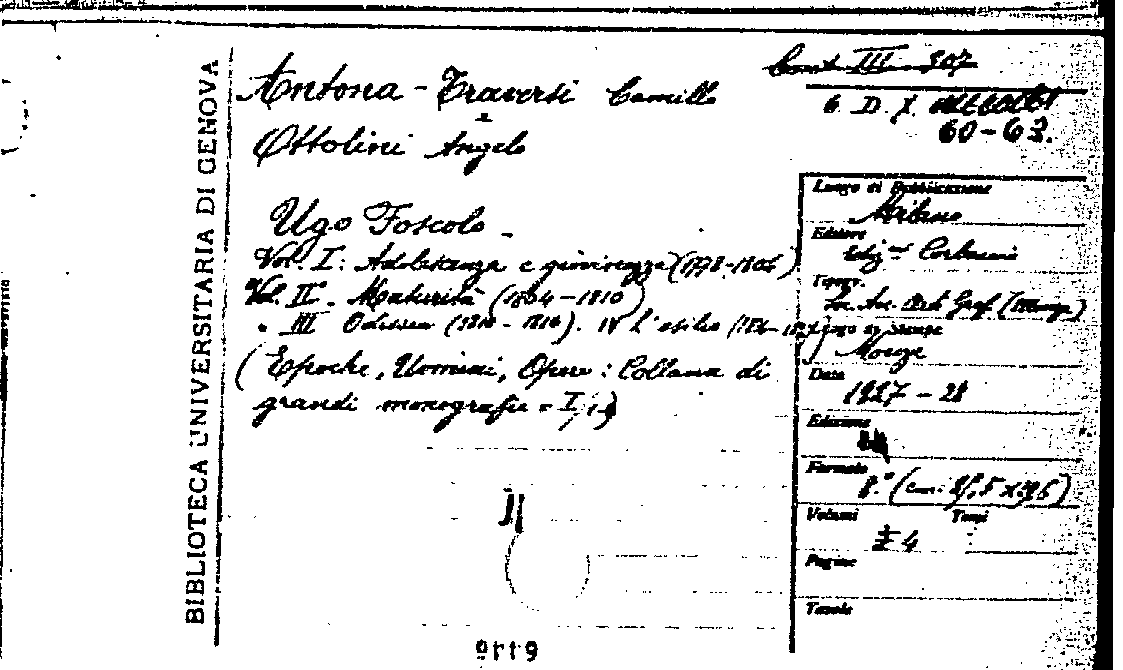 BIBLIOTECA UNIVERSITARIA DI GENOVA
Cont. III 307
Antona-Traversi Camillo
6. D. X.
60-63.
Ottolini Angelo
Ugo Foscolo -
Vol. I: Adolescenza e giovinezza (1778-1804)
Vol. II - Maturità (1804-1810)
" III Odissea (1810-1816). IV L'esilio
(Epoche, Uomini, Opere: Collana di
grandi monografie = I,
Luogo di Pubblicazione
Milano
Editore
Corbaccio
Tipogr.
Graf. (Monza)
Luogo di stampa
Monza
Data
1927-28
Edizione
Formato
8.° (cm.
Volumi Tomi
4
Pagine
Tavole
6119